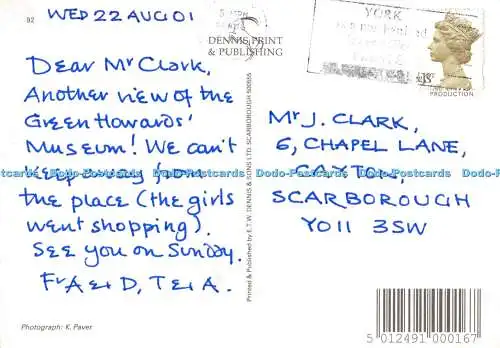 92
WED 22 AUG 01
DENNIS PRINT
& PUBLISHING
YORK
PRODUCTION
Dear Mr Clark,
Another view of the
Green Howards'
Museum! We can't
keep away from
the place (the girls
went shopping).
See you on Sunday.
Fr A & D, T & A.
Mr J. CLARK,
6, CHAPEL LANE,
CAYTON,
SCARBOROUGH
YO11 3SW
Printed & Published by E.T.W. DENNIS & SONS LTD. SCARBOROUGH
Photograph: K. Paver
5 012491 000167
Dodo-Postcards Dodo-Postcards Dodo-Postcards Dodo-Postcards Dodo-Postcards